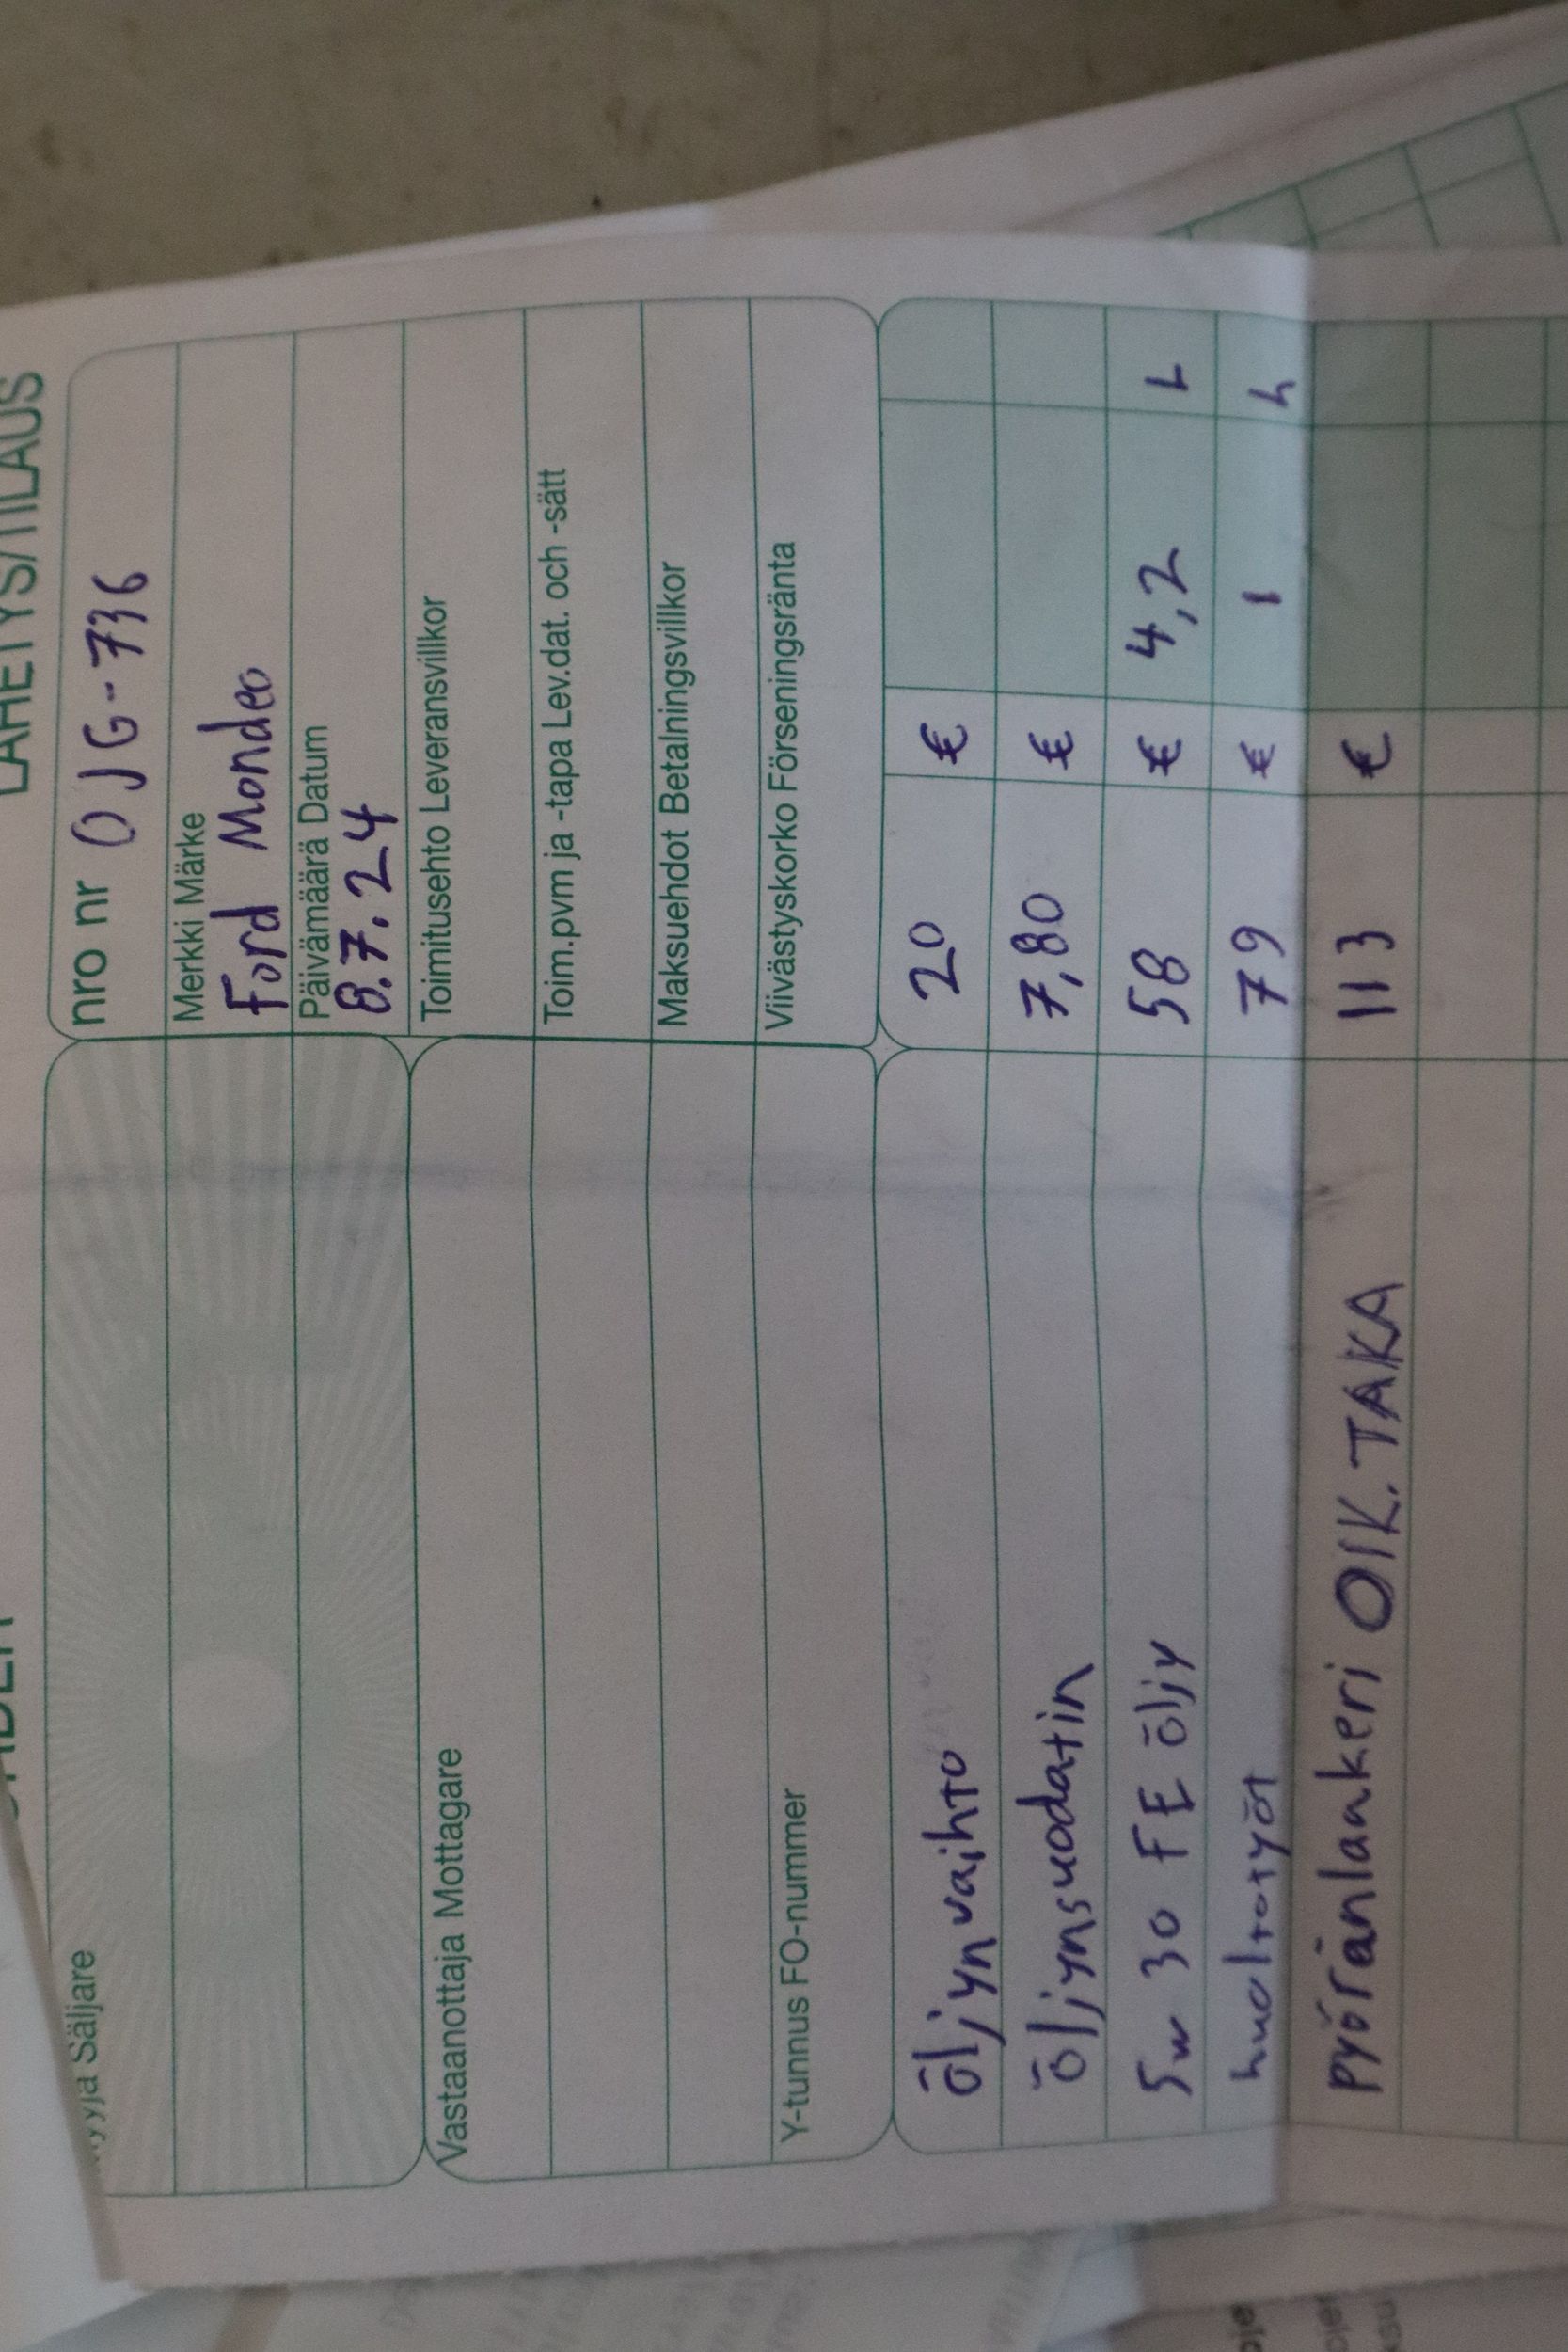 LÄHETYS/TILAUS
nro nr OJG-736
Merkki Märke
Ford Mondeo
Päivämäärä Datum
8.7.24
Säljare
Toimitusehto Leveransvillkor
Vastaanottaja Mottagare
Toim.pvm ja -tapa Lev.dat. och -sätt
Maksuehdot Betalningsvillkor
Y-tunnus FO-nummer
Viivästyskorko Förseningsränta
öljynvaihto 20 €
öljynsuodatin 7,80 €
5w 30 FE öljy 58 € 4,2 L
huoltotyöt 79 € 1 h
pyöränlaakeri OIK. TAKA 113 €